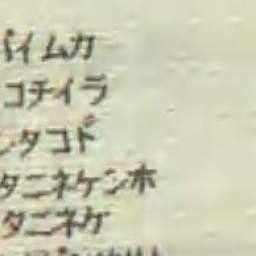 バイムカ
コチイラ
ンタコド
タニネケンホ
タニネケ